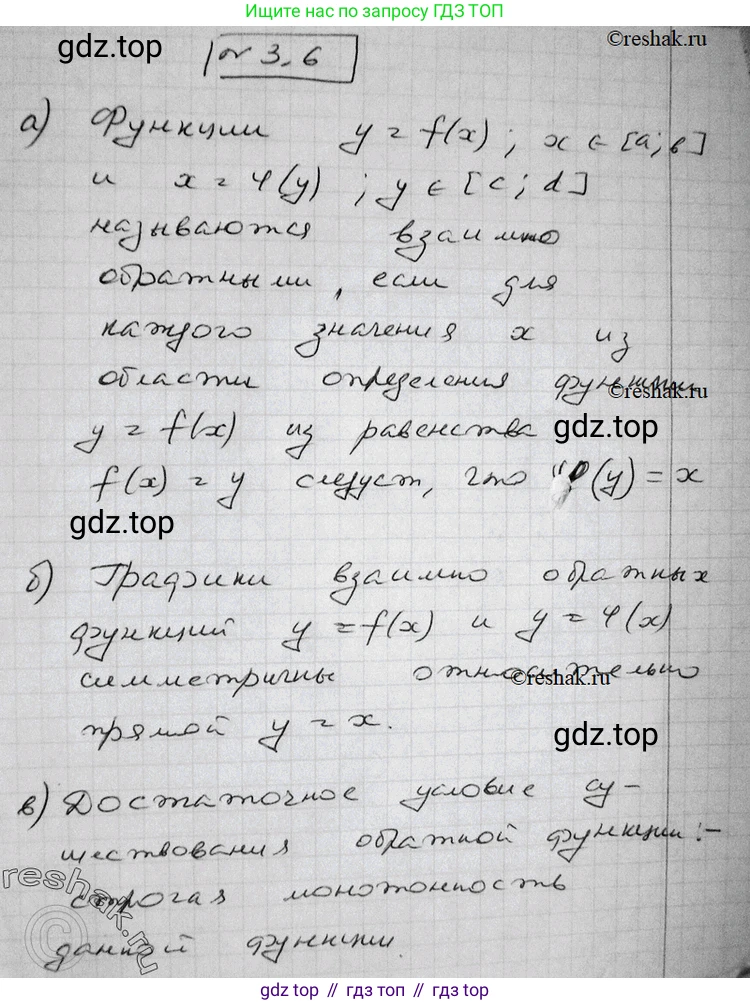 Ищите нас по запросу ГДЗ ТОП
gdz.top
№ 3.6
©reshak.ru
а) Функции y = f(x); x ∈ [a; в]
и x = φ(y); y ∈ [c; d]
называются взаимно
обратными, если для
каждого значения x из
области определения функции
©reshak.ru
y = f(x) из равенства
gdz.top
f(x) = y следует, что φ(y) = x
gdz.top
б) Графики взаимно обратных
функций y = f(x) и y = φ(x)
симметричны относительно
©reshak.ru
прямой y = x.
gdz.top
в) Достаточное условие су-
ществования обратной функции: -
строгая монотонность
reshak.ru
данной функции
©
gdz.top // гдз.топ // gdz.top // гдз.топ